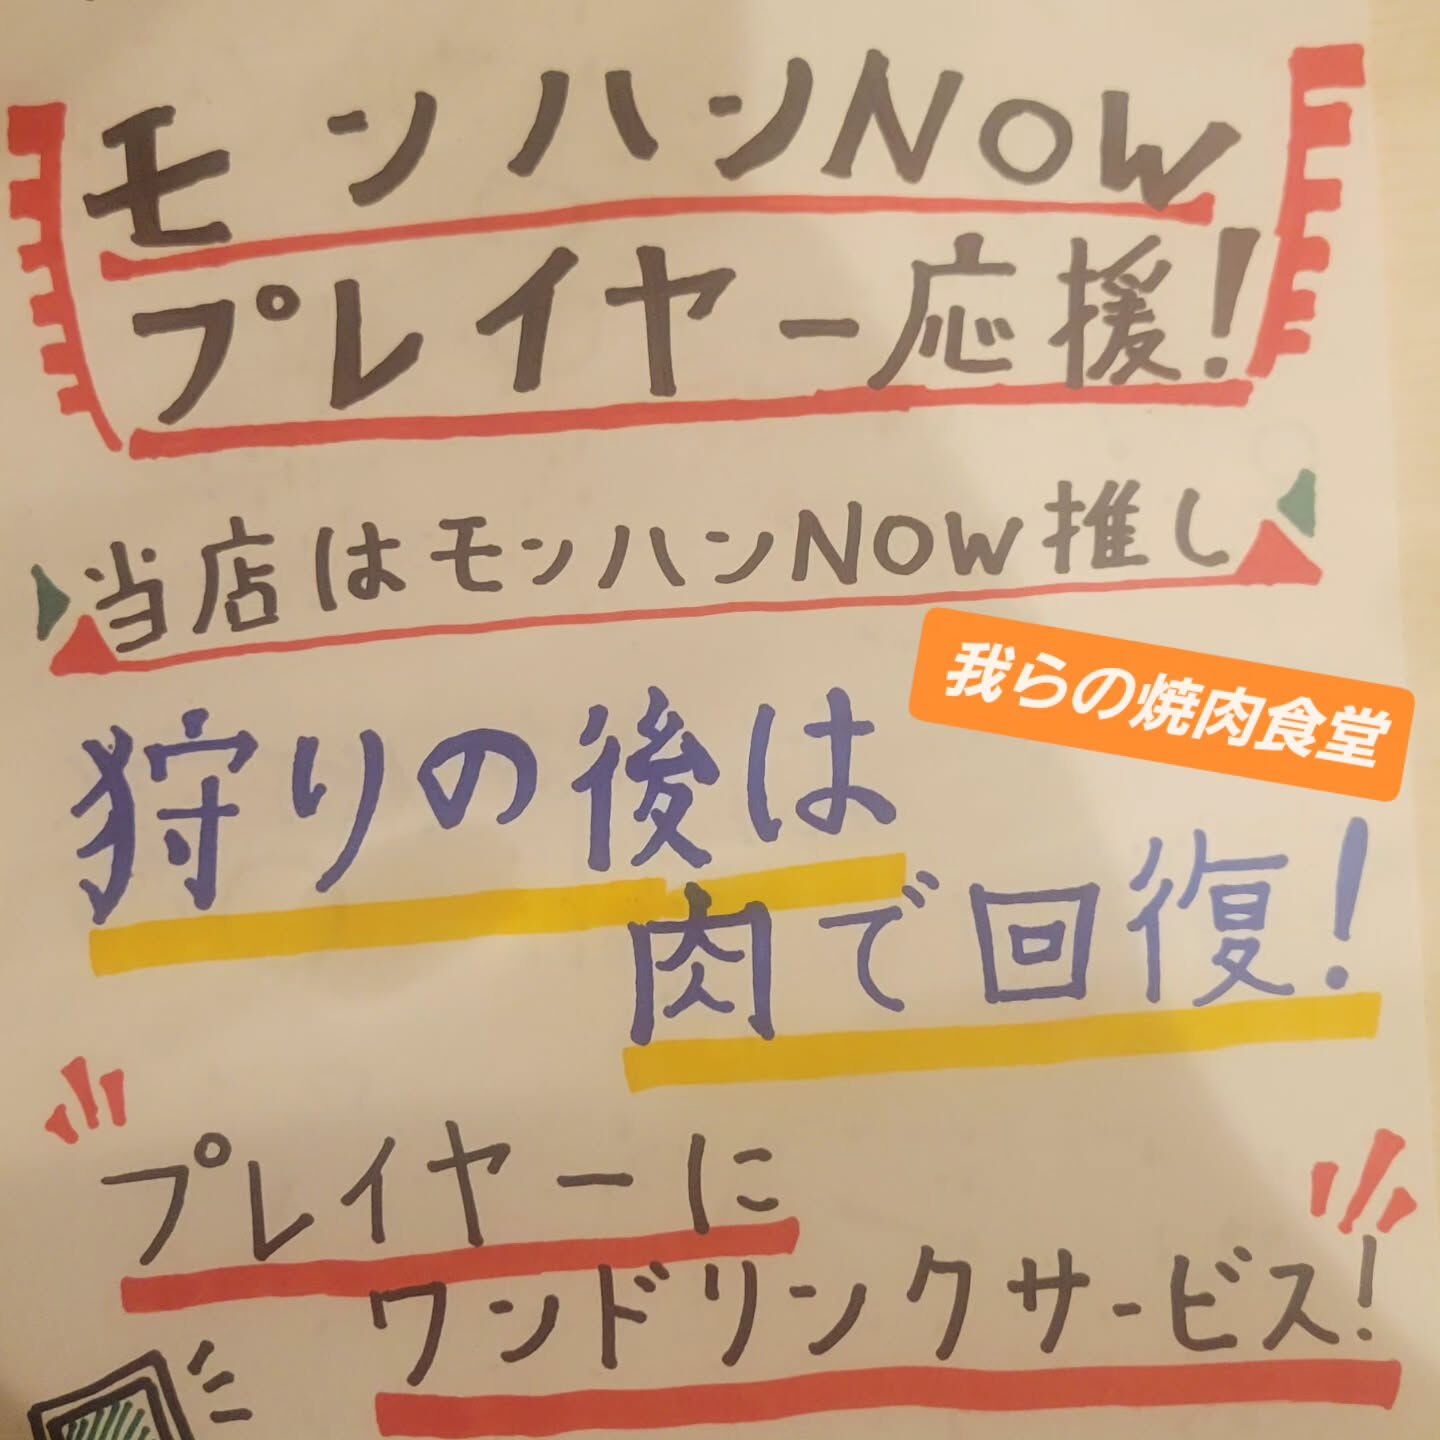 モンハンNOW
プレイヤー応援!
当店はモンハンNOW推し
我らの焼肉食堂
狩りの後は
肉で回復!
プレイヤーに
ワンドリンクサービス!